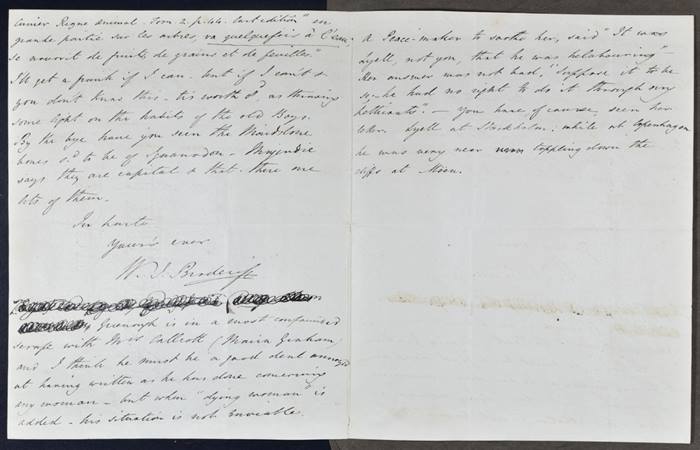 Cuvier Regne Animal. Tom. 2. p. 44. last edition "en
grande partie sur les arbres, va quelquefois à l'eau,
se nourrit de fruits, de grains et de feuilles."
I'll get a punk if I can. but if I can't &
you don't know this - tis worth as throwing
some light on the habits of the old Boys.
By the bye have you seen the Maidstone
bones sd. to be of Iguanodon -
says they are capital & that there are
lots of them.
In haste
Yours ever
W. J. Broderip
Greenough is in a most confounded
scrape with Mrs Callcott (Maria Graham)
and I think he must be a good deal annoyed
at having written as he has done concerning
any woman - but when "dying woman" is
added - his situation is not enviable.
A Peace-maker to soothe her, said "It was
Lyell, not you, that he was belabouring" -
Her answer was not bad, "Suppose it to be
so - he had no right to do it through my
petticoats". - You have of course seen her
letter. Lyell at Stockholm: while at Copenhagen
he was very near toppling down the
cliffs at Möen.